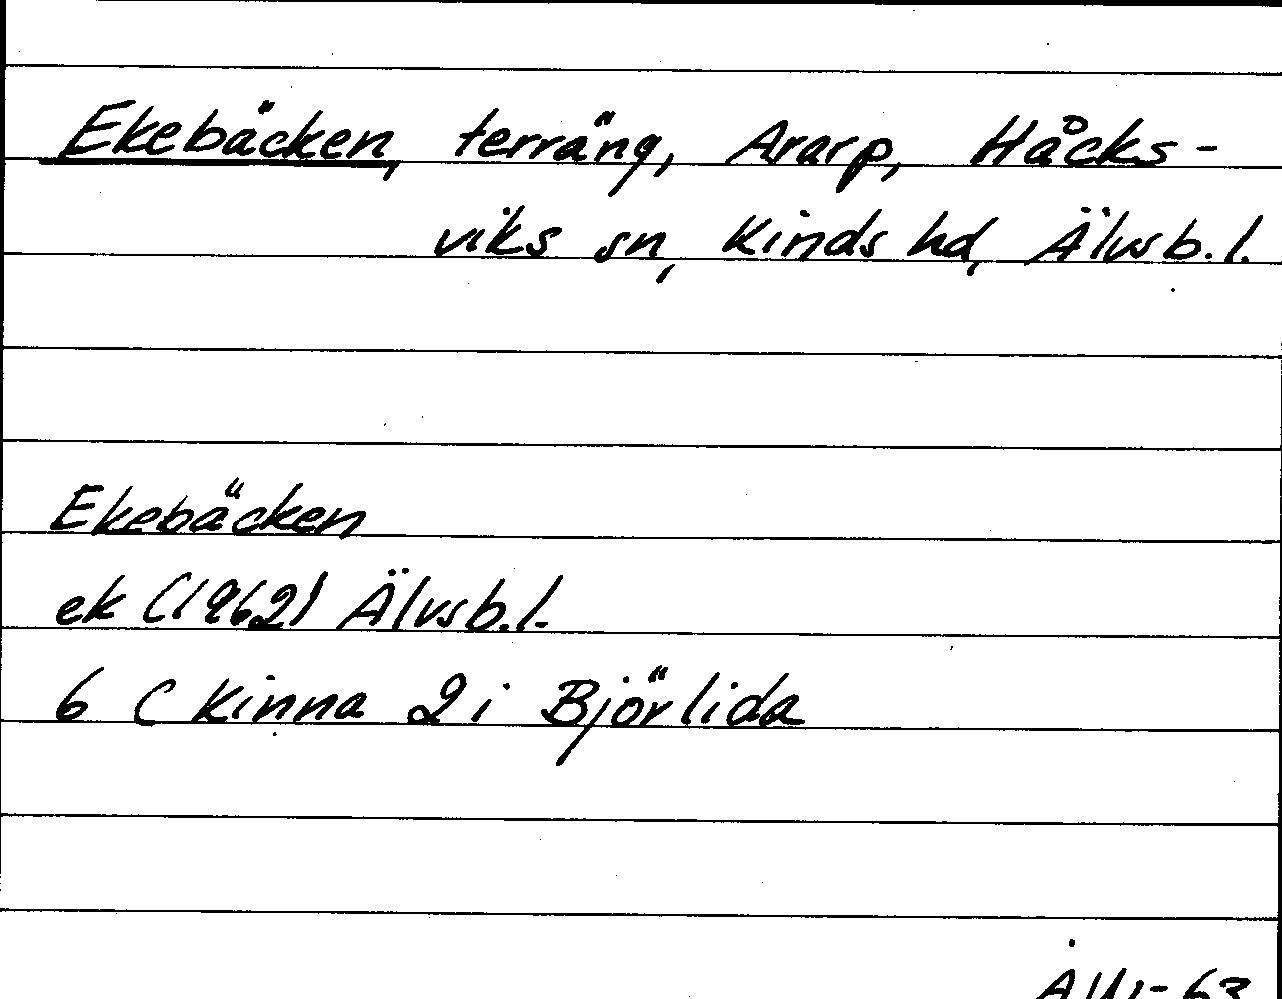 Ekebäcken, terräng, Ararp, Håcks-
viks sn, Kinds hd, Älvsb. l.
Ekebäcken
ek (1962) Älvsb. l.
6 C Kinna 2 i Björlida